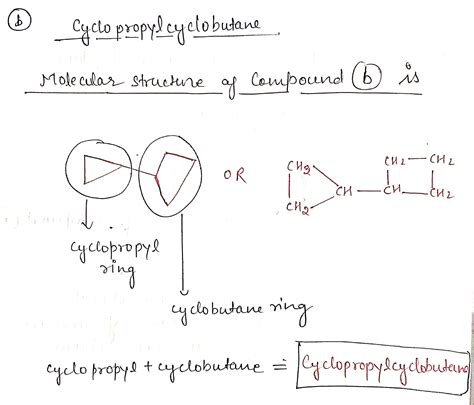 b
Cyclopropylcyclobutane
Molecular structure of Compound b is
OR
CH2
CH2
CH
CH2 CH2
CH CH2
cyclopropyl
ring
cyclobutane ring
cyclopropyl + cyclobutane = Cyclopropylcyclobutane